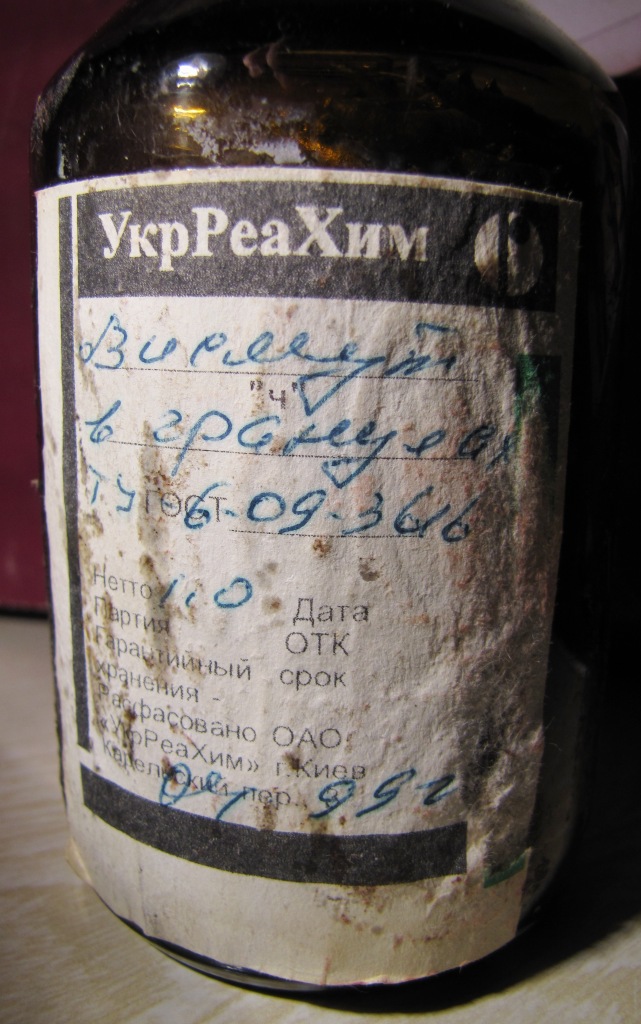 УкрРеаХим
Висмут
"ч"
в гранулах
ТУ ГОСТ 6-09-3616
Нетто 1,0 Дата
Партия ОТК
Гарантийный срок
хранения -
Расфасовано ОАО
«УкрРеаХим» г.Киев
пер.
99г